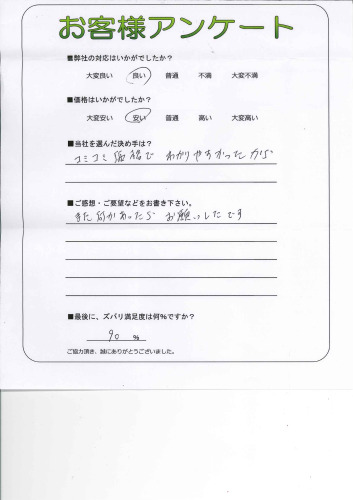 お客様アンケート
■弊社の対応はいかがでしたか?
大変良い 良い 普通 不満 大変不満
■価格はいかがでしたか?
大変安い 安い 普通 高い 大変高い
■当社を選んだ決め手は?
コミコミ価格で わかりやすかったから
■ご感想・ご要望などをお書き下さい。
また何かあったら お願いしたいです
■最後に、ズバリ満足度は何%ですか?
90 %
ご協力頂き、誠にありがとうございました。